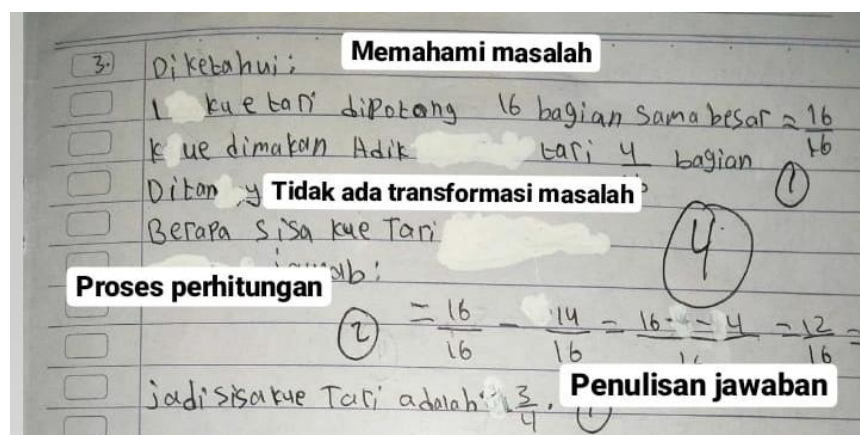 3. Diketahui: Memahami masalah
1 kue tari dipotong 16 bagian sama besar = 16/16
Kue dimakan Adik tari 4 bagian ①
Ditan y Tidak ada transformasi masalah
Berapa sisa kue Tari 4
Proses perhitungan
② = 16/16 - 14/16 = 16 - 4 = 12/16 =
jadi sisa kue Tari adalah 3/4. ① Penulisan jawaban